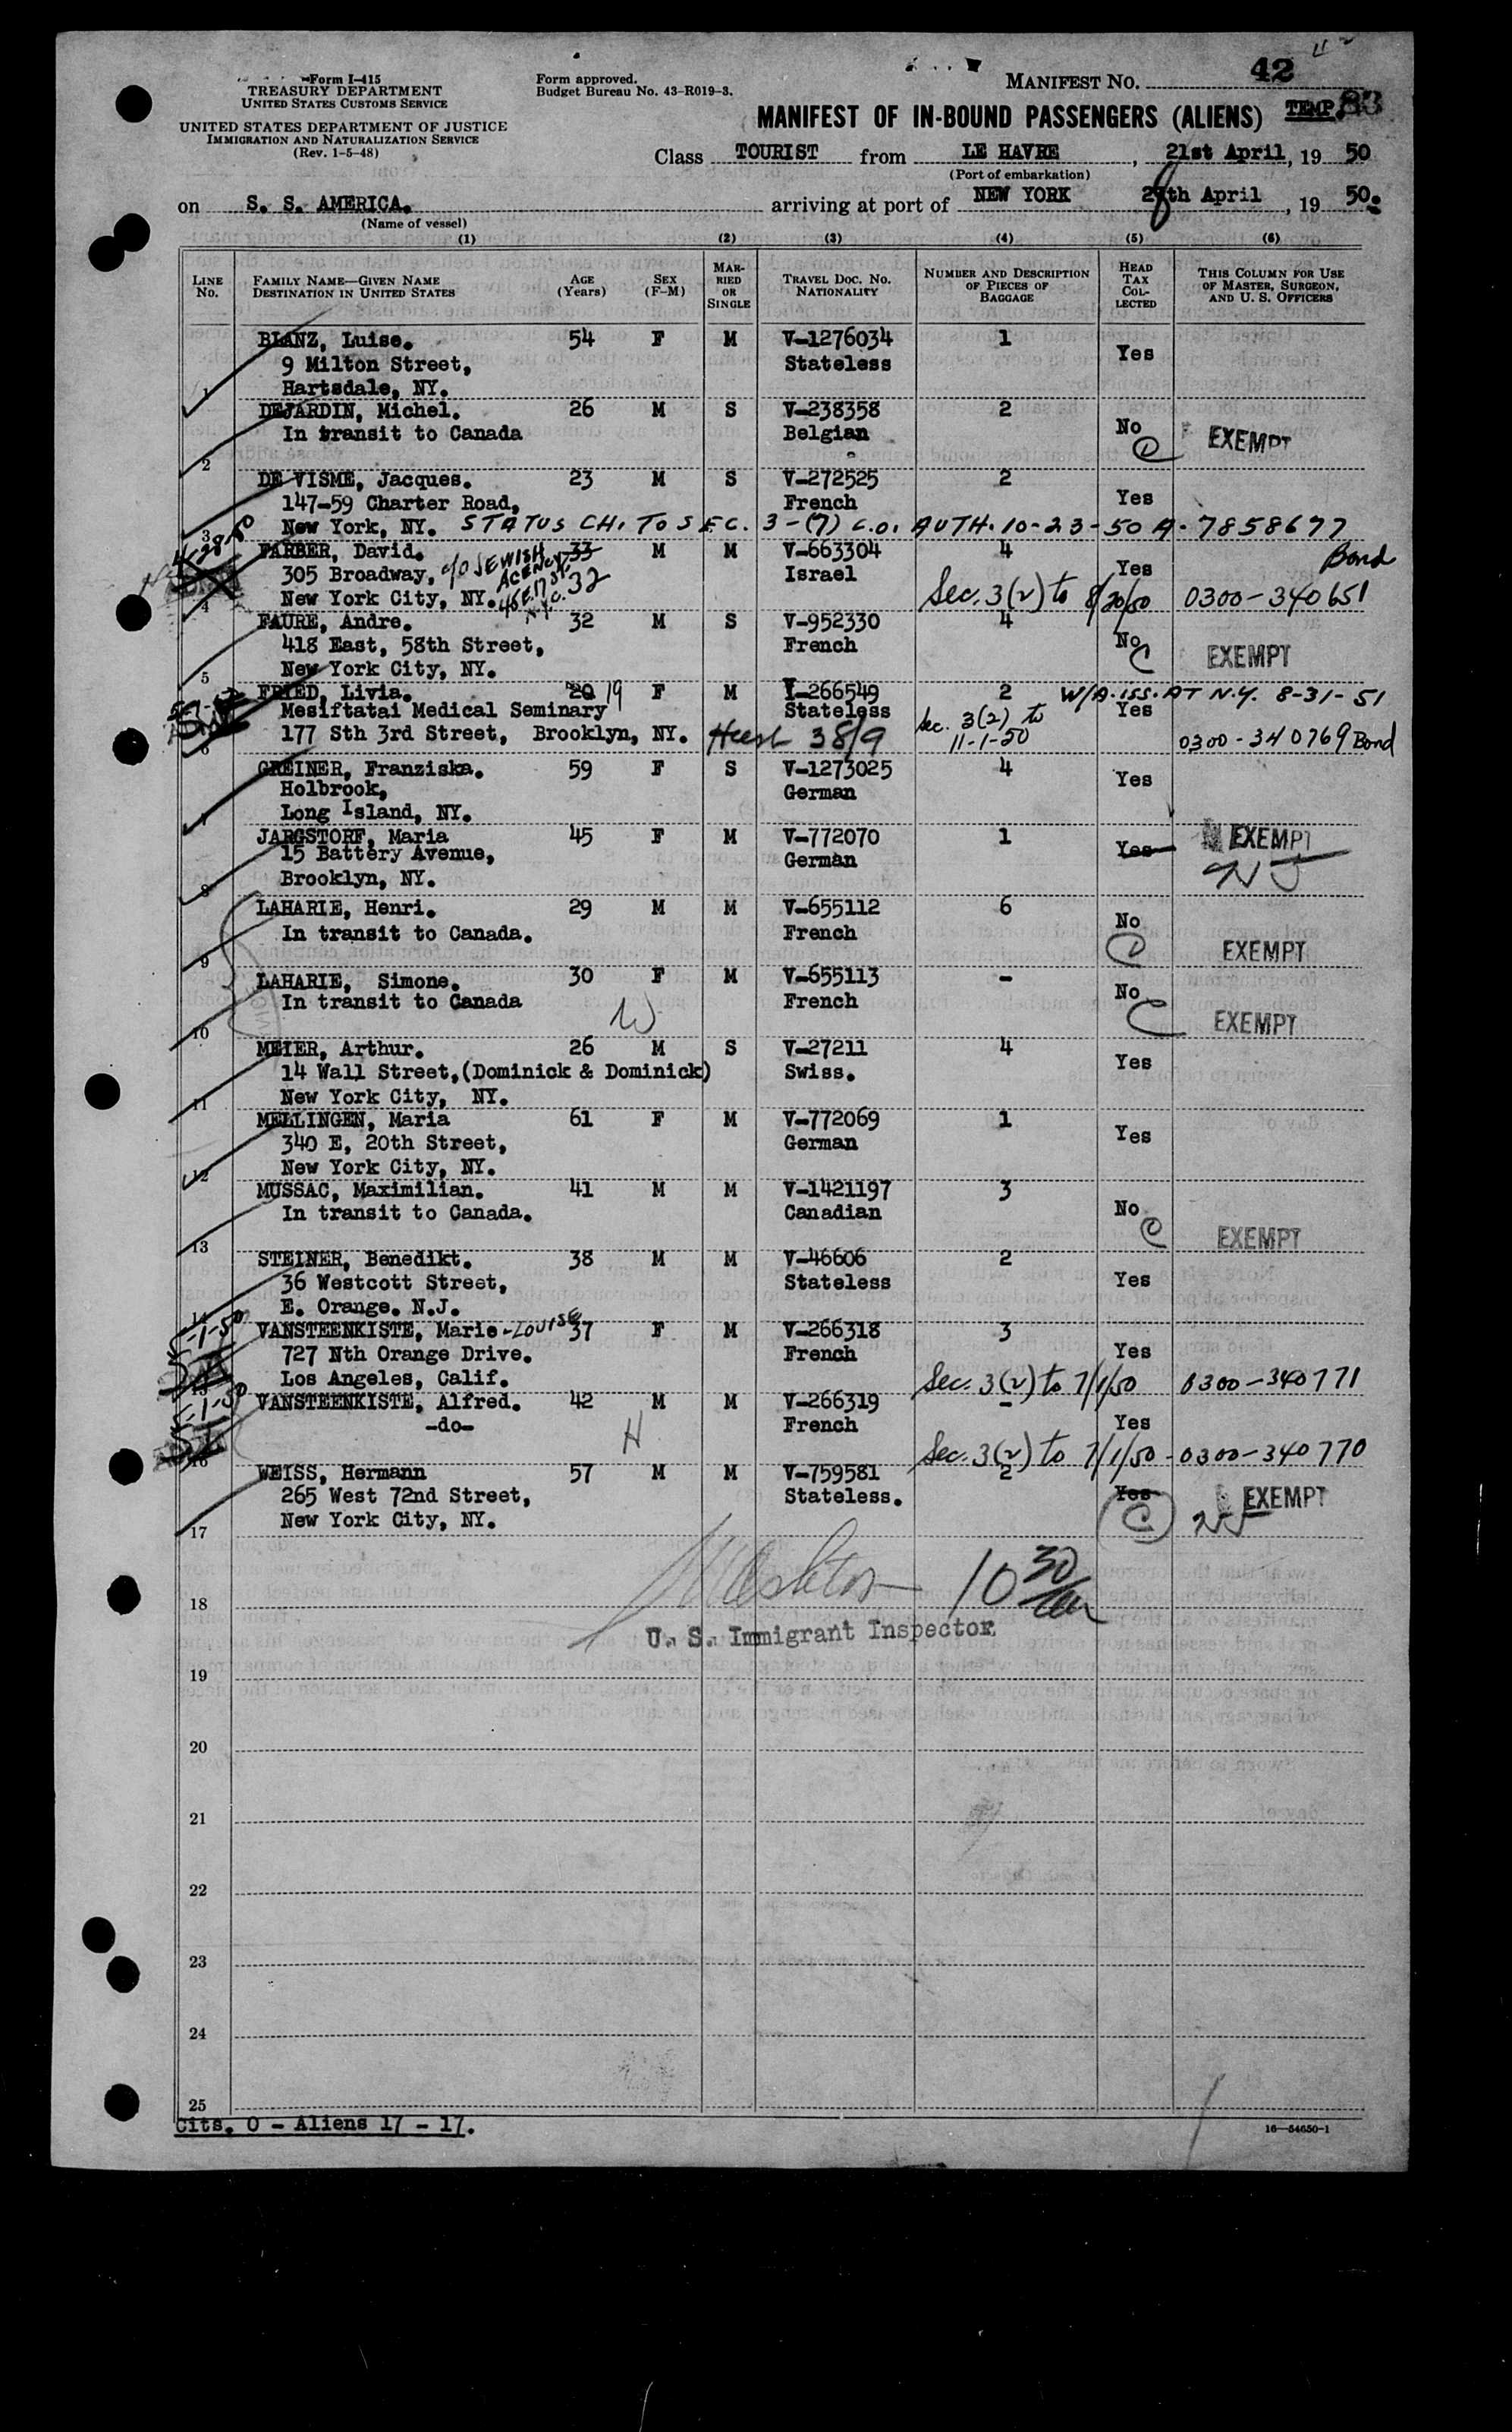 Form I-415
TREASURY DEPARTMENT
UNITED STATES CUSTOMS SERVICE
UNITED STATES DEPARTMENT OF JUSTICE
IMMIGRATION AND NATURALIZATION SERVICE
(Rev. 1-5-48)
Form approved.
Budget Bureau No. 43-R019-3.
MANIFEST NO. 42
MANIFEST OF IN-BOUND PASSENGERS (ALIENS) TEMP. 83
Class TOURIST from LE HAVRE, 21st April, 19 50
(Port of embarkation)
on S. S. AMERICA. arriving at port of NEW YORK 28th April, 19 50.
(Name of vessel)
(1) (2) (3) (4) (5) (6)
LINE No. FAMILY NAME—GIVEN NAME DESTINATION IN UNITED STATES AGE (Years) SEX (F-M) MARRIED OR SINGLE TRAVEL DOC. NO. NATIONALITY NUMBER AND DESCRIPTION OF PIECES OF BAGGAGE HEAD TAX COLLECTED THIS COLUMN FOR USE OF MASTER, SURGEON, AND U. S. OFFICERS
BLANZ, Luise. 54 F M V-1276034 1
9 Milton Street, Stateless Yes
1 Hartsdale, NY.
DEJARDIN, Michel. 26 M S V-238358 2
In transit to Canada Belgian No C EXEMPT
2
DE VISME, Jacques. 23 M S V-272525 2
147-59 Charter Road, French Yes
3 New York, NY. STATUS CH. TO SEC. 3-(7) C.O. AUTH. 10-23-50 A-7858677
4-28-50 FARBER, David. 33 M M V-663304 4 Bond
305 Broadway, c/o JEWISH AGENCY Israel Yes
4 New York City, NY. 45 E. 17 St. N.Y.C. 32 Sec. 3(2) to 8/20/50 0300-340651
FAURE, Andre. 32 M S V-952330 4
418 East, 58th Street, French No C EXEMPT
5 New York City, NY.
FRIED, Livia. 20 19 F M I-266549 2 W/A. ISS. AT N.Y. 8-31-51
Mesiftatai Medical Seminary Stateless Sec. 3(2) to Yes
6 177 Sth 3rd Street, Brooklyn, NY. 38/9 11-1-50 0300-340769 Bond
GREINER, Franziska. 59 F S V-1273025 4
Holbrook, German Yes
7 Long Island, NY.
JARGSTORF, Maria 45 F M V-772070 1 EXEMPT
15 Battery Avenue, German Yes NJ
8 Brooklyn, NY.
LAHARIE, Henri. 29 M M V-655112 6
In transit to Canada. French No
9 EXEMPT
LAHARIE, Simone. 30 F M V-655113 -
In transit to Canada French No C EXEMPT
10 W
MEIER, Arthur. 26 M S V-27211 4
14 Wall Street,(Dominick & Dominick) Swiss. Yes
11 New York City, NY.
MELLINGEN, Maria 61 F M V-772069 1
340 E, 20th Street, German Yes
12 New York City, NY.
MUSSAC, Maximilian. 41 M M V-1421197 3
In transit to Canada. Canadian No C EXEMPT
13
STEINER, Benedikt. 38 M M V-46606 2
36 Westcott Street, Stateless Yes
14 E. Orange. N.J.
5-1-50 VANSTEENKISTE, Marie-LOUISE 37 F M V-266318 3
727 Nth Orange Drive. French Yes
15 Los Angeles, Calif. Sec. 3(2) to 7/1/50 0300-340771
5-1-50 VANSTEENKISTE, Alfred. 42 M M V-266319 -
-do- H French Yes
16 Sec. 3(2) to 7/1/50 - 0300-340770
WEISS, Hermann 57 M M V-759581 2
265 West 72nd Street, Stateless. Yes C NJ EXEMPT
17 New York City, NY.
10 30
18
U. S. Immigrant Inspector
19
20
21
22
23
24
25
Cits. 0 - Aliens 17 - 17.
16—54650-1